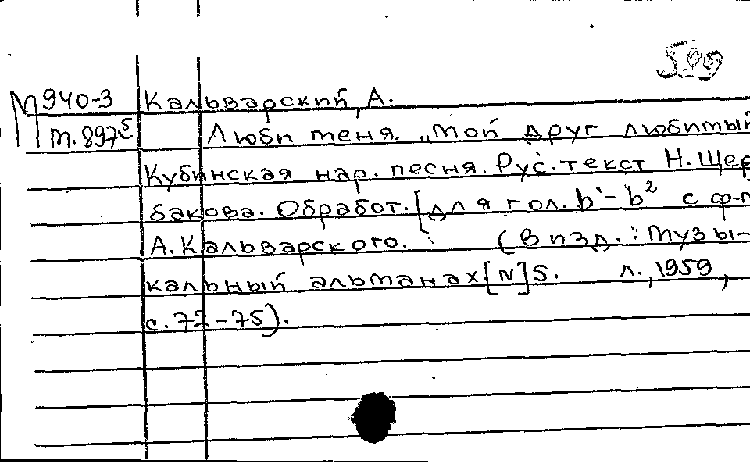 М940-3 Кальварский, А.
т.897⁵ Люби меня. „Мой друг любимый
Кубинская нар. песня. Рус. текст Н. Щер-
бакова. Обработ. [для гол. b¹-b² с ф-п
А. Кальварского. (В изд.: Музы-
кальный альманах [N] 5. Л., 1959,
с. 72-75).